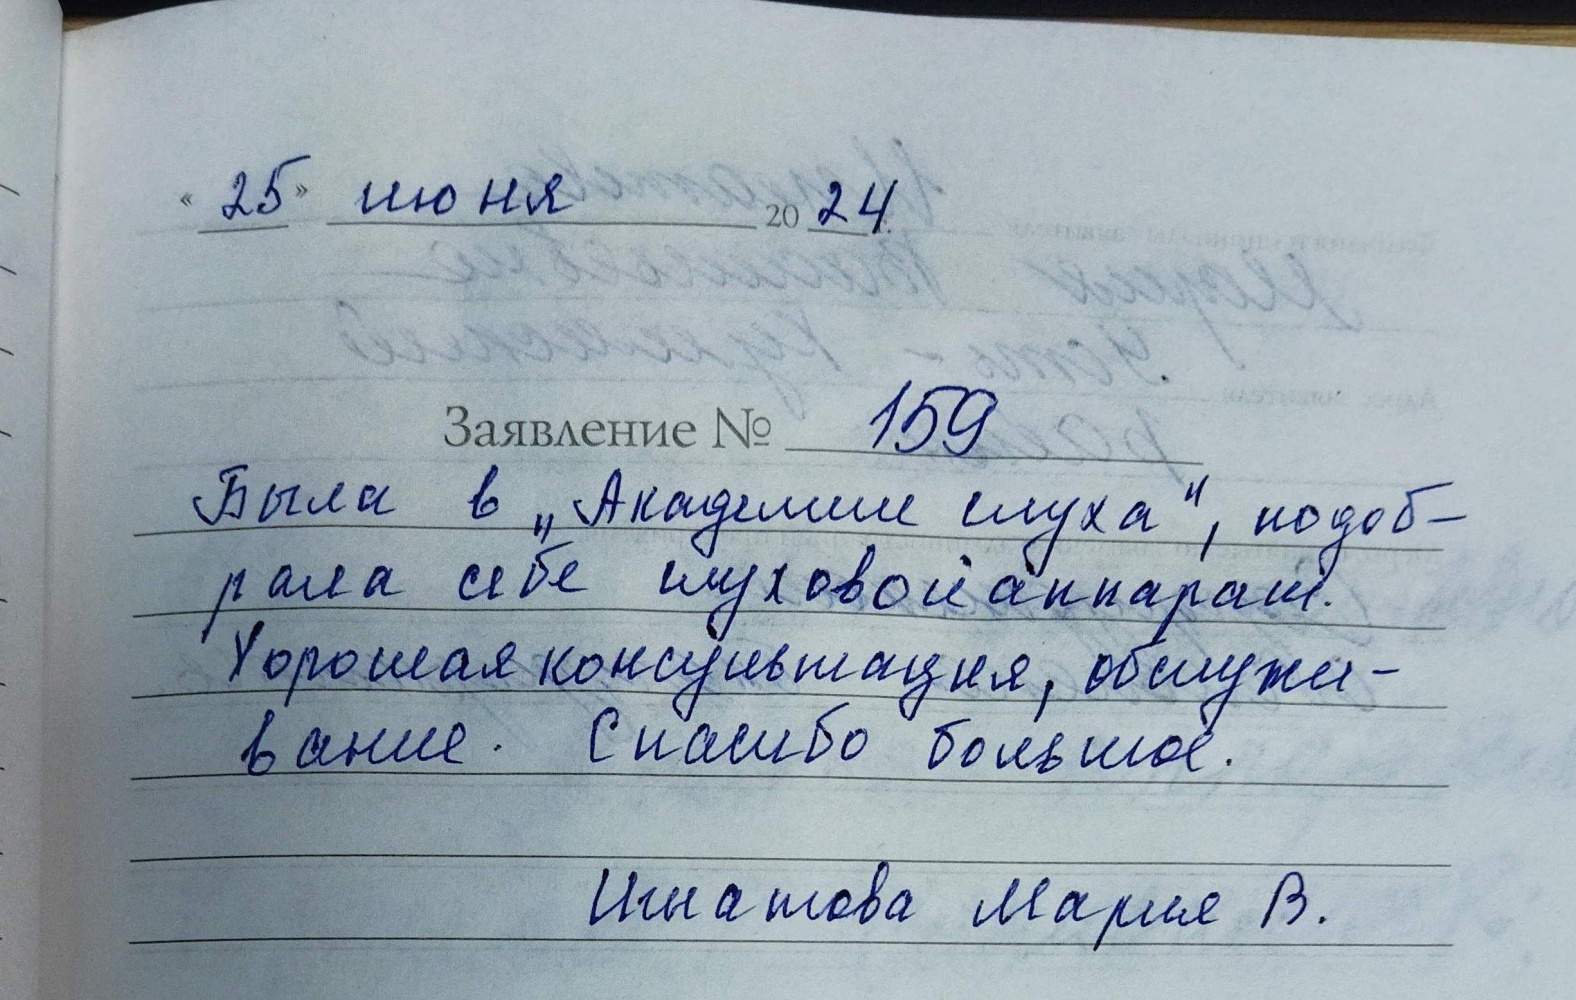 « 25 » июня 2024г.
Заявление № 159
Была в „Академии слуха", подоб-
рала себе слуховой аппарат.
Хорошая консультация, обслужи-
вание. Спасибо большое.
Игнатова Мария В.